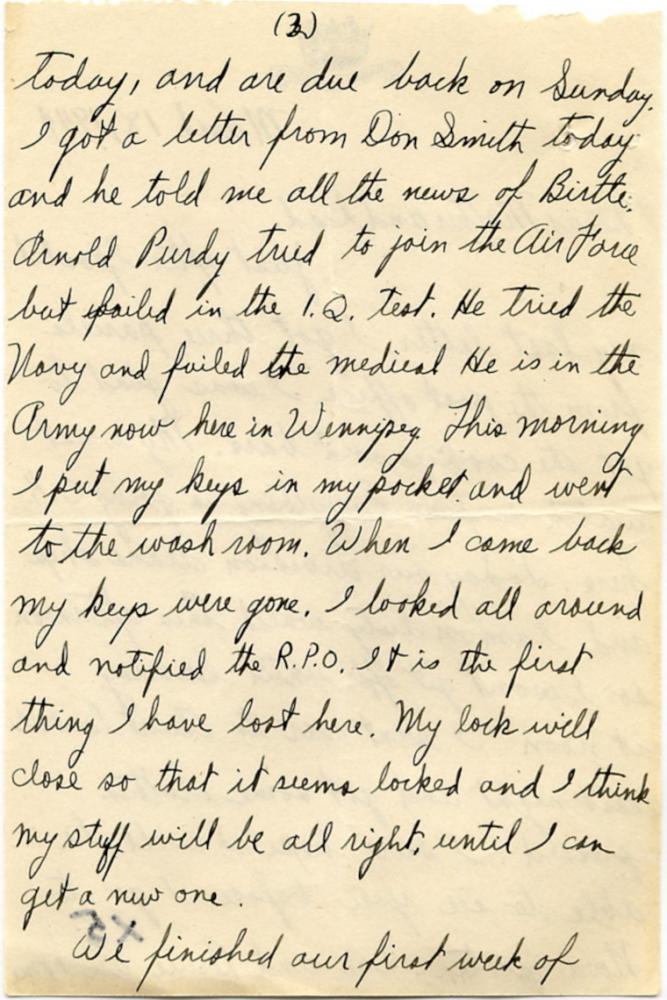 (2)
today, and are due back on Sunday.
I got a letter from Don Smith today
and he told me all the news of Birtle.
Arnold Purdy tried to join the Air Force
but failed in the I.Q. test. He tried the
Navy and failed the medical He is in the
Army now here in Wennipeg. This morning
I put my keys in my pocket and went
to the wash room. When I came back
my keys were gone. I looked all around
and notified the R.P.O. It is the first
thing I have lost here. My lock will
close so that it seems locked and I think
my stuff will be all right, until I can
get a new one.
We finished our first week of